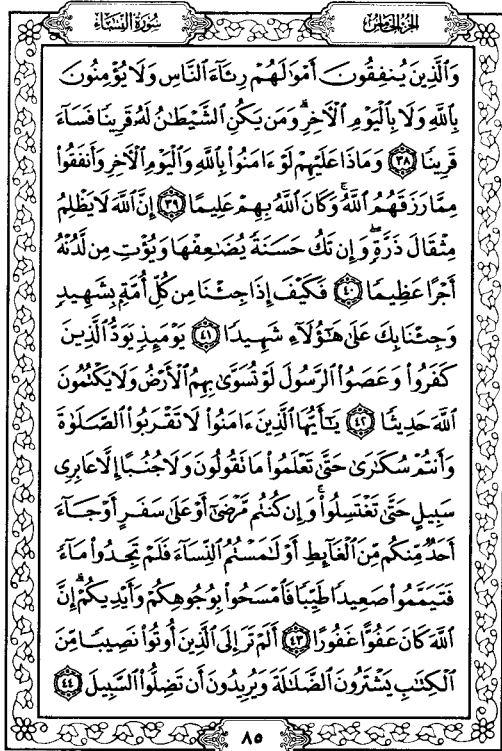 سُورَةُ النِّسَاءِ
الجزء الخامس
وَٱلَّذِينَ يُنفِقُونَ أَمْوَٰلَهُمْ رِئَآءَ ٱلنَّاسِ وَلَا يُؤْمِنُونَ
بِٱللَّهِ وَلَا بِٱلْيَوْمِ ٱلْأَخِرِ ۗ وَمَن يَكُنِ ٱلشَّيْطَٰنُ لَهُۥ قَرِينًا فَسَآءَ
قَرِينًا ٣٨ وَمَاذَا عَلَيْهِمْ لَوْ ءَامَنُوا۟ بِٱللَّهِ وَٱلْيَوْمِ ٱلْأَخِرِ وَأَنفَقُوا۟
مِمَّا رَزَقَهُمُ ٱللَّهُ ۚ وَكَانَ ٱللَّهُ بِهِمْ عَلِيمًا ٣٩ إِنَّ ٱللَّهَ لَا يَظْلِمُ
مِثْقَالَ ذَرَّةٍ ۖ وَإِن تَكُ حَسَنَةً يُضَٰعِفْهَا وَيُؤْتِ مِن لَّدُنْهُ
أَجْرًا عَظِيمًا ٤٠ فَكَيْفَ إِذَا جِئْنَا مِن كُلِّ أُمَّةٍۭ بِشَهِيدٍ
وَجِئْنَا بِكَ عَلَىٰ هَٰٓؤُلَآءِ شَهِيدًا ٤١ يَوْمَئِذٍ يَوَدُّ ٱلَّذِينَ
كَفَرُوا۟ وَعَصَوُا۟ ٱلرَّسُولَ لَوْ تُسَوَّىٰ بِهِمُ ٱلْأَرْضُ وَلَا يَكْتُمُونَ
ٱللَّهَ حَدِيثًا ٤٢ يَٰٓأَيُّهَا ٱلَّذِينَ ءَامَنُوا۟ لَا تَقْرَبُوا۟ ٱلصَّلَوٰةَ
وَأَنتُمْ سُكَٰرَىٰ حَتَّىٰ تَعْلَمُوا۟ مَا تَقُولُونَ وَلَا جُنُبًا إِلَّا عَابِرِى
سَبِيلٍ حَتَّىٰ تَغْتَسِلُوا۟ ۚ وَإِن كُنتُم مَّرْضَىٰٓ أَوْ عَلَىٰ سَفَرٍ أَوْ جَآءَ
أَحَدٌ مِّنكُم مِّنَ ٱلْغَآئِطِ أَوْ لَٰمَسْتُمُ ٱلنِّسَآءَ فَلَمْ تَجِدُوا۟ مَآءً
فَتَيَمَّمُوا۟ صَعِيدًا طَيِّبًا فَٱمْسَحُوا۟ بِوُجُوهِكُمْ وَأَيْدِيكُمْ ۗ إِنَّ
ٱللَّهَ كَانَ عَفُوًّا غَفُورًا ٤٣ أَلَمْ تَرَ إِلَى ٱلَّذِينَ أُوتُوا۟ نَصِيبًا مِّنَ
ٱلْكِتَٰبِ يَشْتَرُونَ ٱلضَّلَٰلَةَ وَيُرِيدُونَ أَن تَضِلُّوا۟ ٱلسَّبِيلَ ٤٤
٨٥